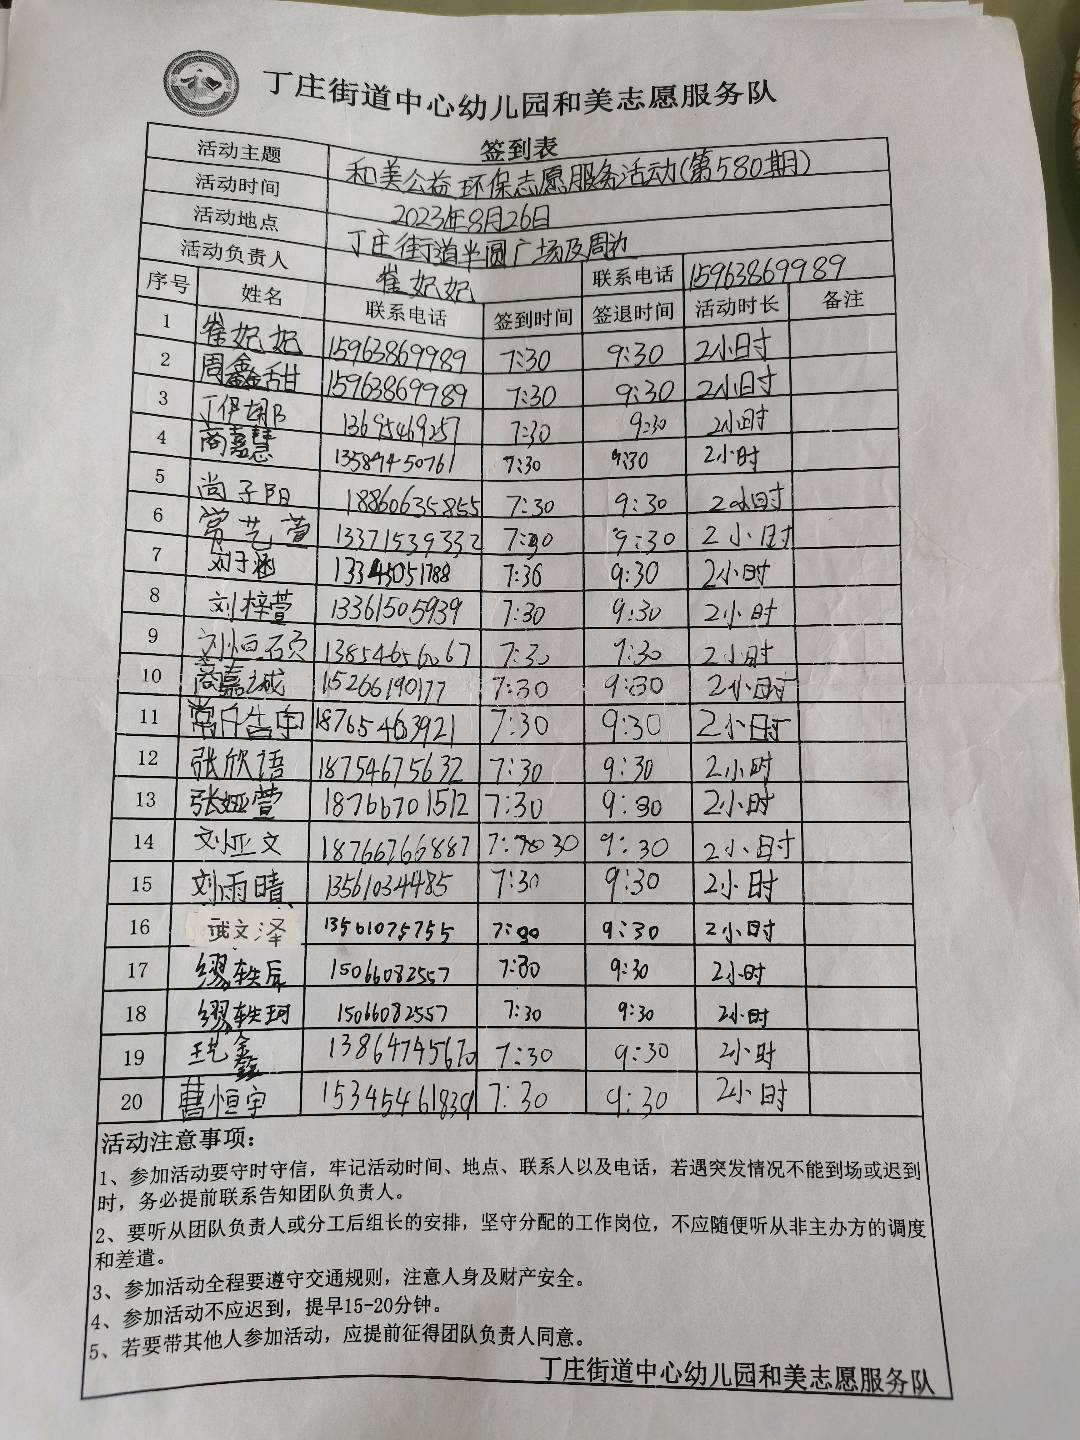 丁庄街道中心幼儿园和美志愿服务队
签到表
活动主题 和美公益环保志愿服务活动(第580期)
活动时间 2023年8月26日
活动地点 丁庄街道半圆广场及周边
活动负责人 崔妃妃 联系电话 15963869989
序号 姓名 联系电话 签到时间 签退时间 活动时长 备注
1 崔妃妃 15963869989 7:30 9:30 2小时
2 周鑫甜 15963869989 7:30 9:30 2小时
3 丁伊娜 13695469257 7:30 9:30 2小时
4 商嘉慧 13589450761 7:30 9:30 2小时
5 尚子阳 18860635855 7:30 9:30 2小时
6 常艺萱 13371539332 7:30 9:30 2小时
7 刘子涵 13345051788 7:30 9:30 2小时
8 刘梓萱 13361505939 7:30 9:30 2小时
9 刘怕硕 13854656067 7:30 9:30 2小时
10 商嘉城 15266190177 7:30 9:30 2小时
11 常皓宇 18765463921 7:30 9:30 2小时
12 张欣语 18754675632 7:30 9:30 2小时
13 张娅萱 18766701512 7:30 9:30 2小时
14 刘亚文 18766766887 7:30 9:30 2小时
15 刘雨晴 13561034485 7:30 9:30 2小时
16 武文泽 13561075755 7:30 9:30 2小时
17 缪轶辰 15066082557 7:30 9:30 2小时
18 缪轶珂 15066082557 7:30 9:30 2小时
19 王艺鑫 13864745670 7:30 9:30 2小时
20 曹恒宇 15345461839 7:30 9:30 2小时
活动注意事项:
1、参加活动要守时守信，牢记活动时间、地点、联系人以及电话，若遇突发情况不能到场或迟到
时，务必提前联系告知团队负责人。
2、要听从团队负责人或分工后组长的安排，坚守分配的工作岗位，不应随便听从非主办方的调度
和差遣。
3、参加活动全程要遵守交通规则，注意人身及财产安全。
4、参加活动不应迟到，提早15-20分钟。
5、若要带其他人参加活动，应提前征得团队负责人同意。
丁庄街道中心幼儿园和美志愿服务队